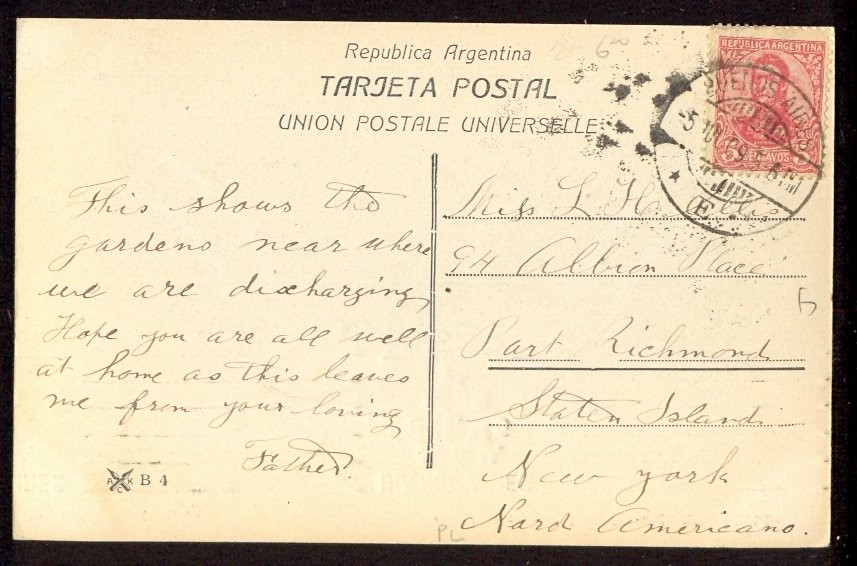 Republica Argentina
TARJETA POSTAL
UNION POSTALE UNIVERSELLE
REPUBLICA ARGENTINA
CENTAVOS
BUENOS AIRES
This shows the
gardens near where
we are discharging
Hope you are all well
at home as this leaves
me from your loving
Father.
B 4
Miss L H
94 Albion Place
Port Richmond
Staten Island
New york
Nord Americano.
PL